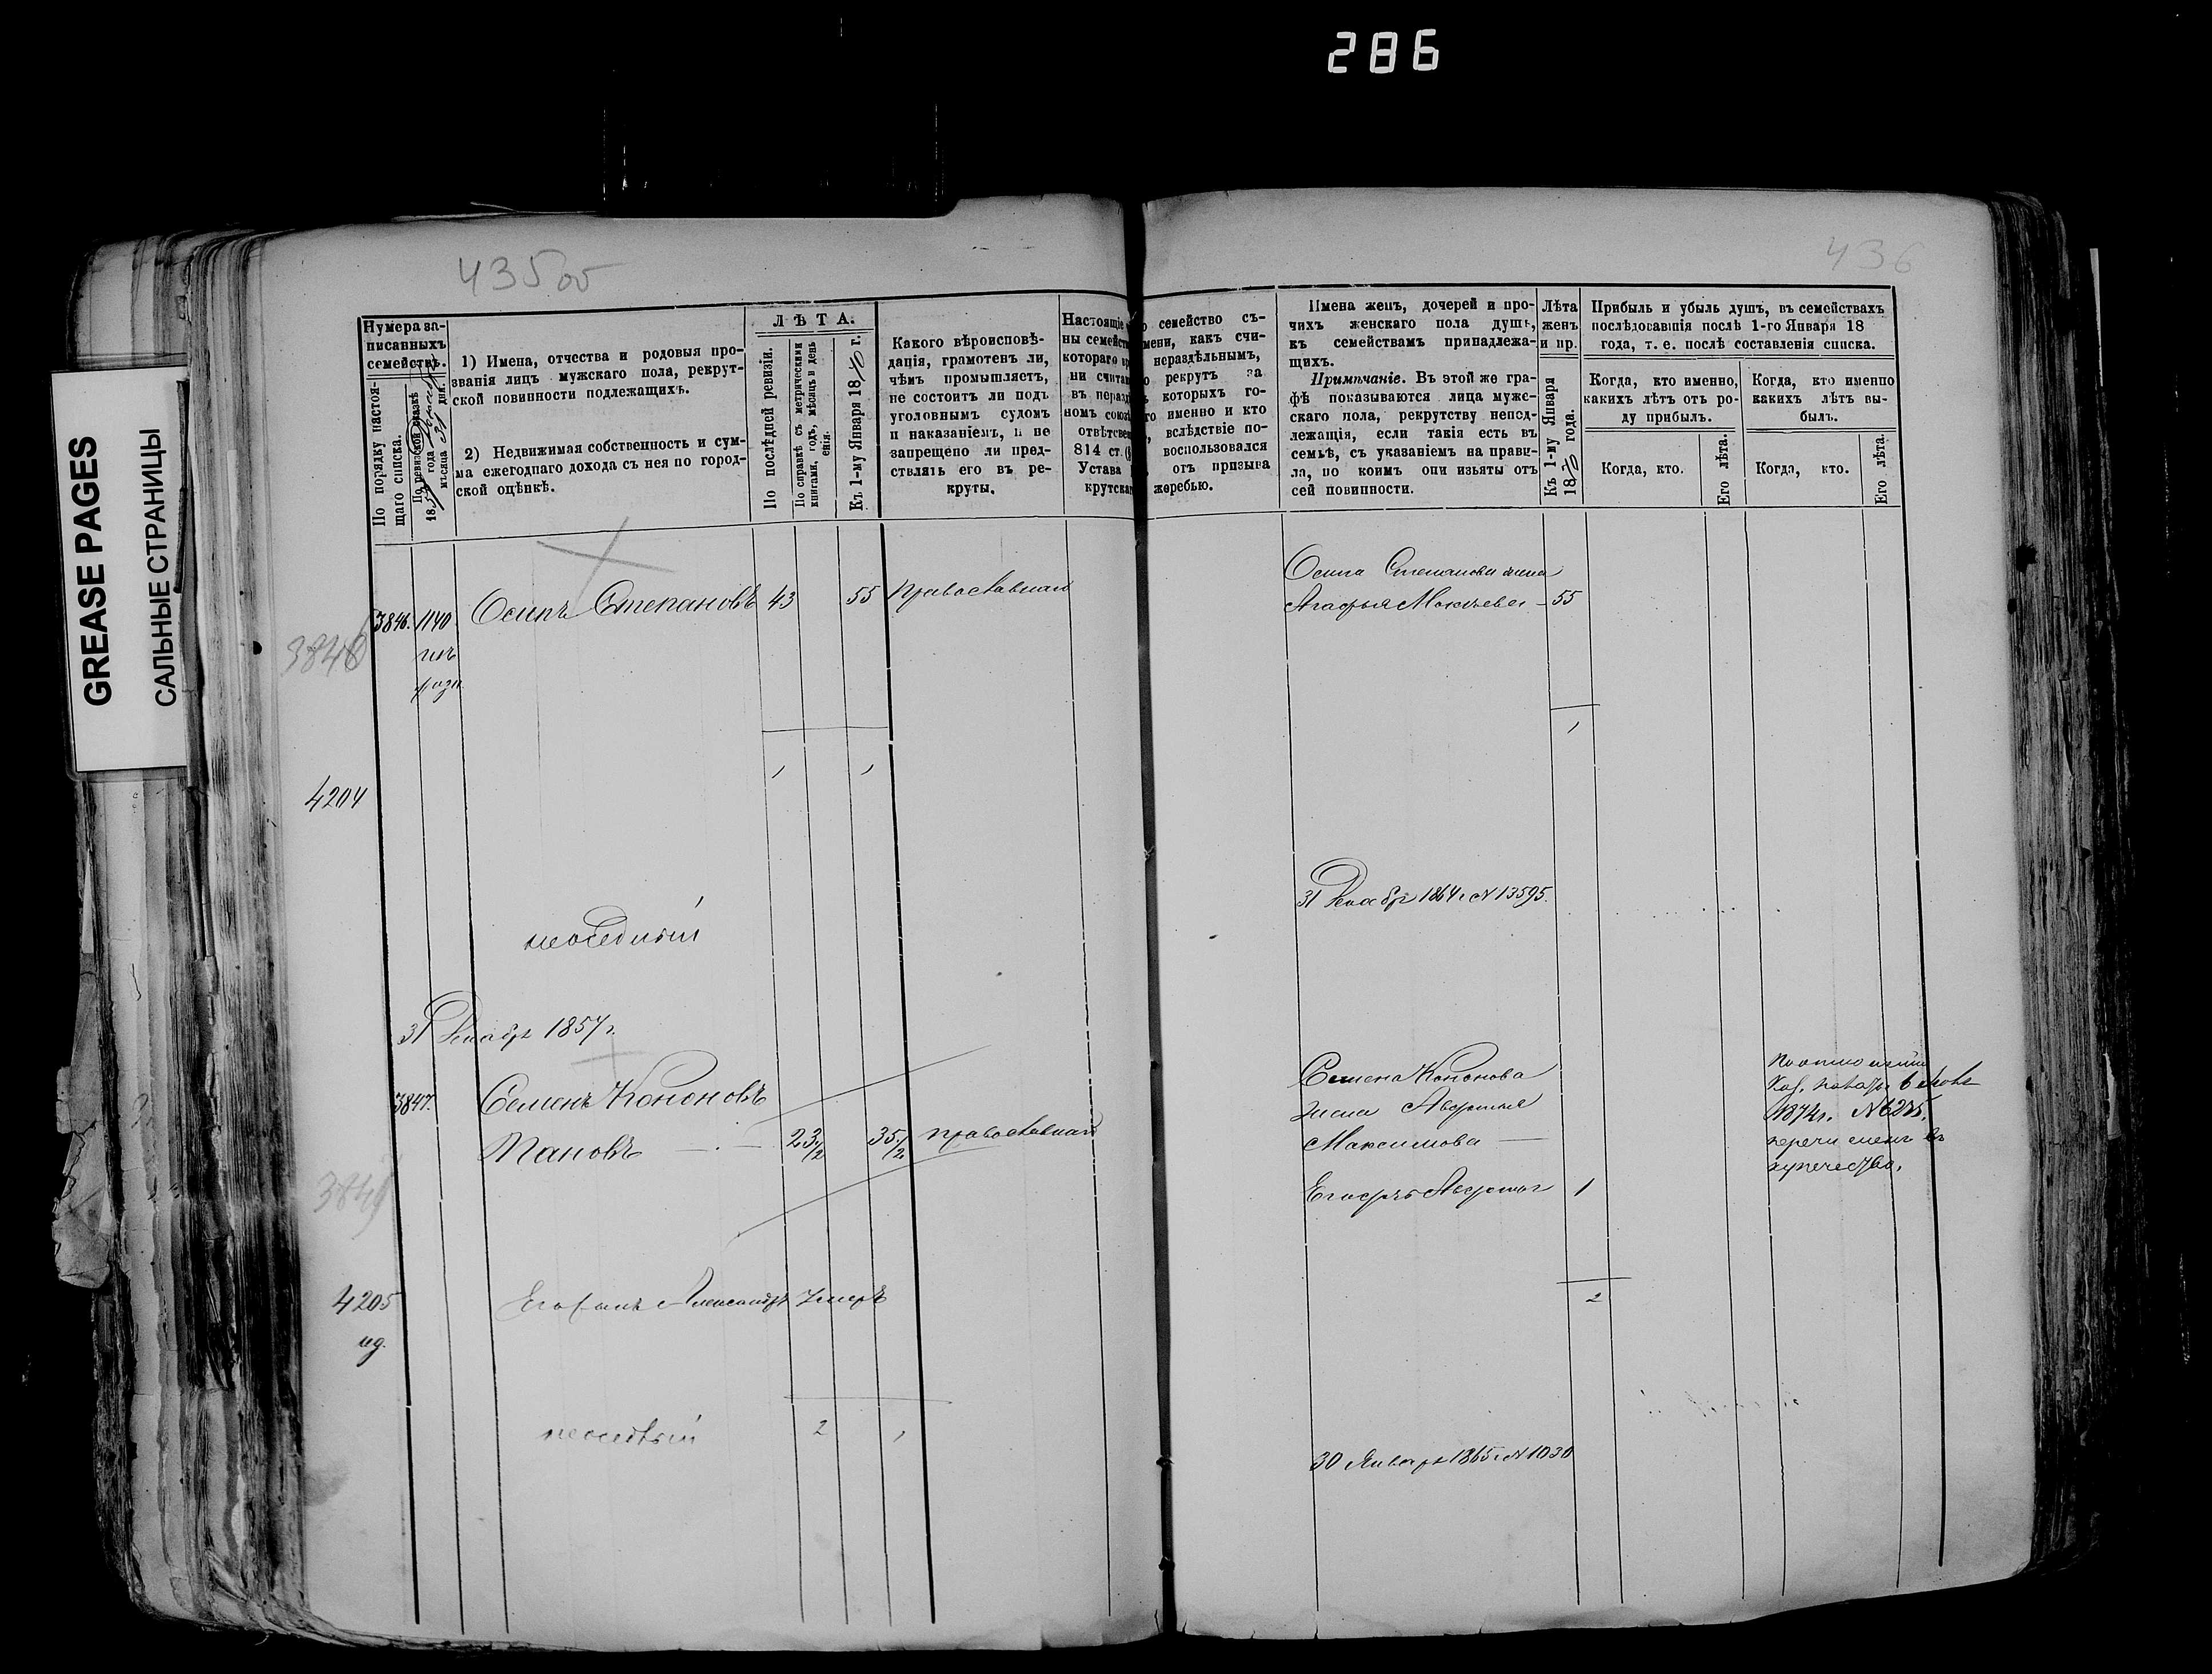 286
GREASE PAGES
САЛЬНЫЕ СТРАНИЦЫ
435 об
436
Нумера за-
писанныхъ
семействъ.
По порядку настоя-
щаго списка.
По ревизской сказкѣ
18 года
мѣсяца 31 дня.
1) Имена, отчества и родовыя про-
званія лицъ мужскаго пола, рекрут-
ской повинности подлежащихъ.
2) Недвижимая собственность и сум-
ма ежегоднаго дохода съ нея по город-
ской оцѣнкѣ.
ЛѢТА.
По послѣдней ревизіи.
По справкѣ съ метрическими
книгами, годъ, мѣсяцъ и день
Къ 1-му Января 1870 г.
Какого вѣроисповѣ-
данія, грамотенъ ли,
чѣмъ промышляетъ,
не состоитъ ли подъ
уголовнымъ судомъ
и наказаніемъ, и не
запрещено ли пред-
ствлять его въ ре-
круты.
Настоящіе
ны семейст
котораго
ни счита
въ нераз
номъ союз
отвѣтстве
814 ст.
Устава
крутска
семейство съ-
мени, какъ счи-
нераздѣльнымъ,
рекрутъ за
которыхъ го-
го именно и кто
вслѣдствіе по-
воспользовался
отъ призыва
жеребью.
Имена женъ, дочерей и про-
чихъ женскаго пола душъ,
къ семействамъ принадлежа-
щихъ.
Примѣчаніе. Въ этой же гра-
фѣ показываются лица муже-
скаго пола, рекрутству непод-
лежащія, если такія есть въ
семьѣ, съ указаніемъ на прави-
ла, по коимъ они изъяты отъ
сей повинности.
Лѣта
женъ
и пр.
Къ 1-му Января
1870 года.
Прибыль и убыль душъ, въ семействахъ
послѣдовавшія послѣ 1-го Января 18
года, т. е. послѣ составленія списка.
Когда, кто именно,
какихъ лѣтъ отъ ро-
ду прибылъ.
Когда, кто.
Его лѣта.
Когда, кто именно
какихъ лѣтъ вы-
былъ.
Когда, кто.
Его лѣта.
3846. 1140 Осипъ Степановъ 43 55 Православнаго
3846
1 1
4204
неоседлый
Осипа Степанова жена
Агафья Мокѣева - 55
1
31 Декабря 1864 г. № 13595.
31 Декабря 1857 г.
3847. Семенъ Кононовъ
Пановъ 23 1/2 35 1/2 православнаго
4205
Александръ умеръ
неоседлый 2 1
Семена Кононова
жена Авдотья
Максимова
1
2
30 Января 1865 г. № 1030
1874 г. № 6235,
перечисленъ въ
купечество.